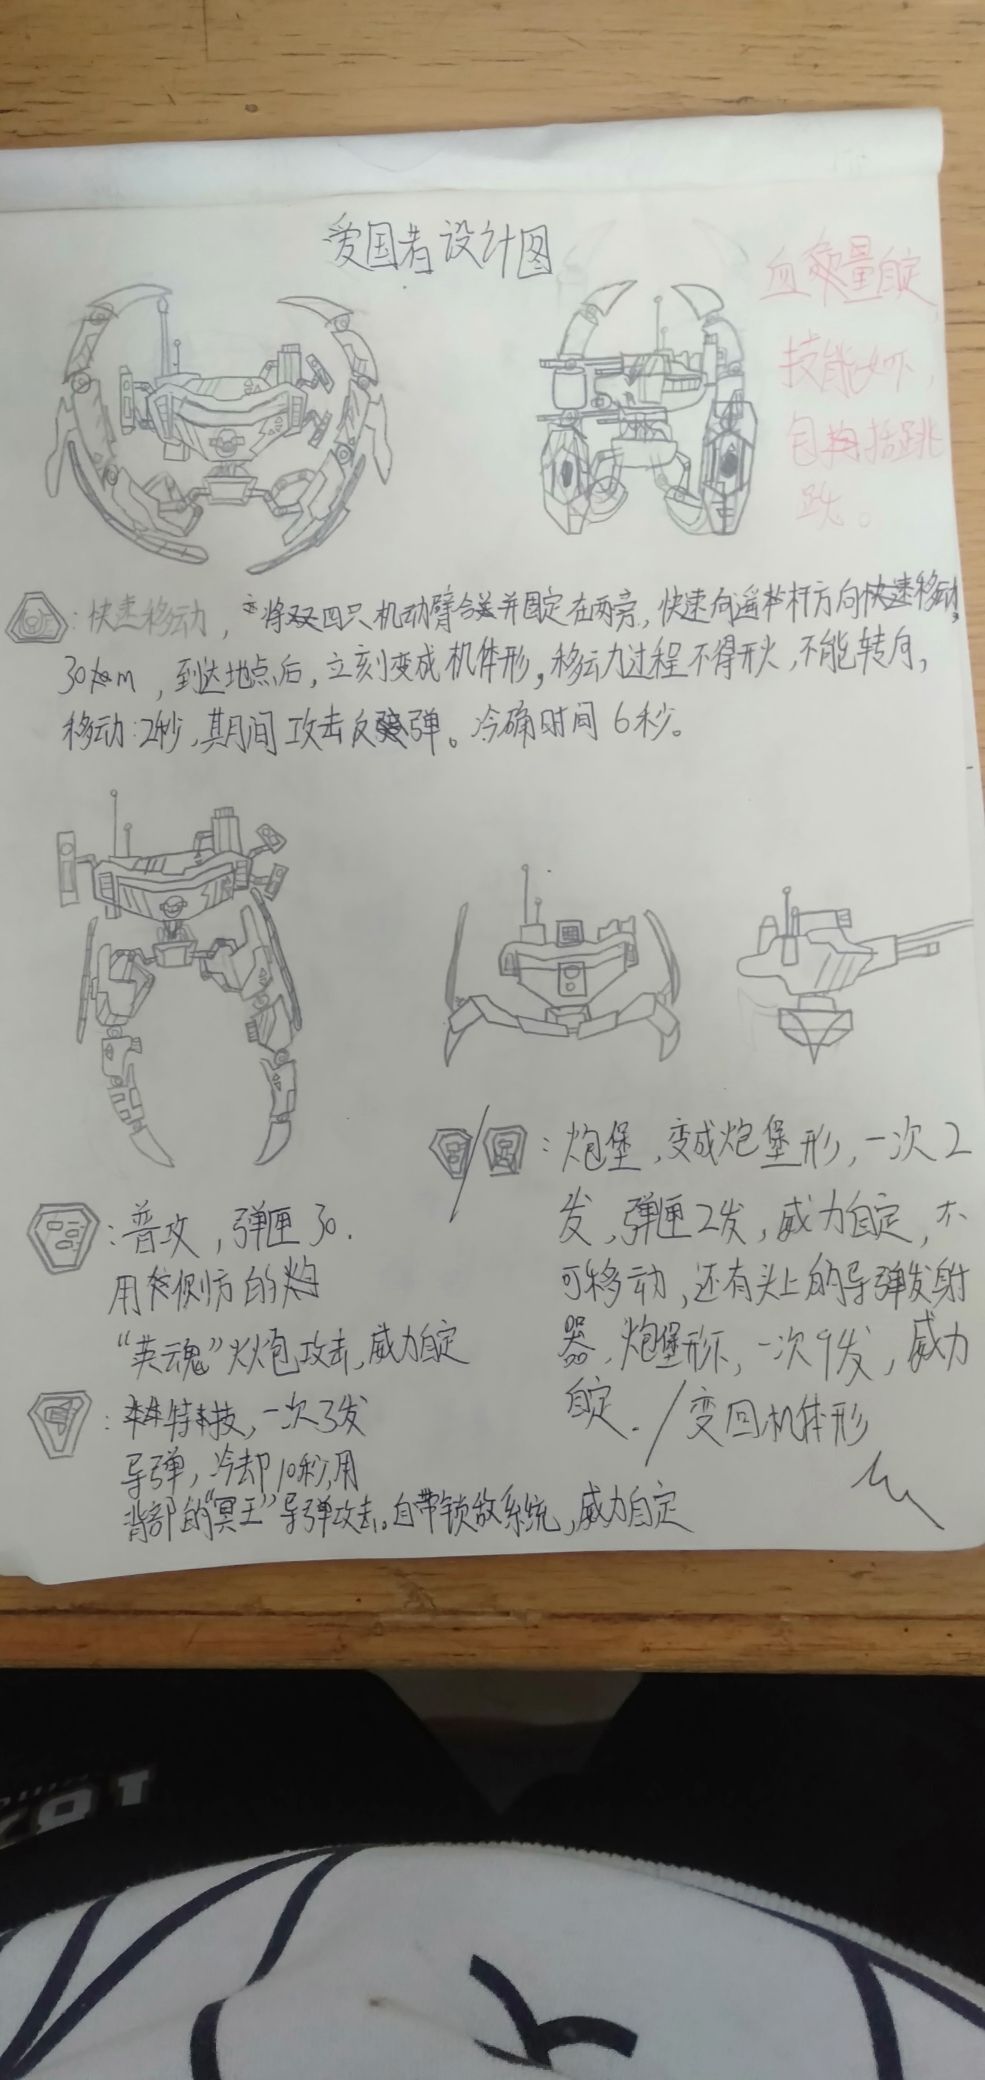 爱国者设计图
血量自定,
技能如下,
包括跳
跃。
:快速移动,将四只机动臂合并固定在两旁,快速向遥杆方向快速移动,
30m,到达地点后,立刻变成机体形,移动过程不得开火,不能转向,
移动:2秒,其月间攻击反弹。冷确时间6秒。
:普攻,弹匣30.
用侧方的
“英魂”火炮攻击,威力自定
:特技,一次3发
导弹,冷却10秒,用
背部的“冥王”导弹攻击。自带锁敌系统,威力自定
/ :炮堡,变成炮堡形,一次2
发,弹匣2发,威力自定,不
可移动,还有头上的导弹发射
器,炮堡形下,一次9发,威力
自定./变回机体形